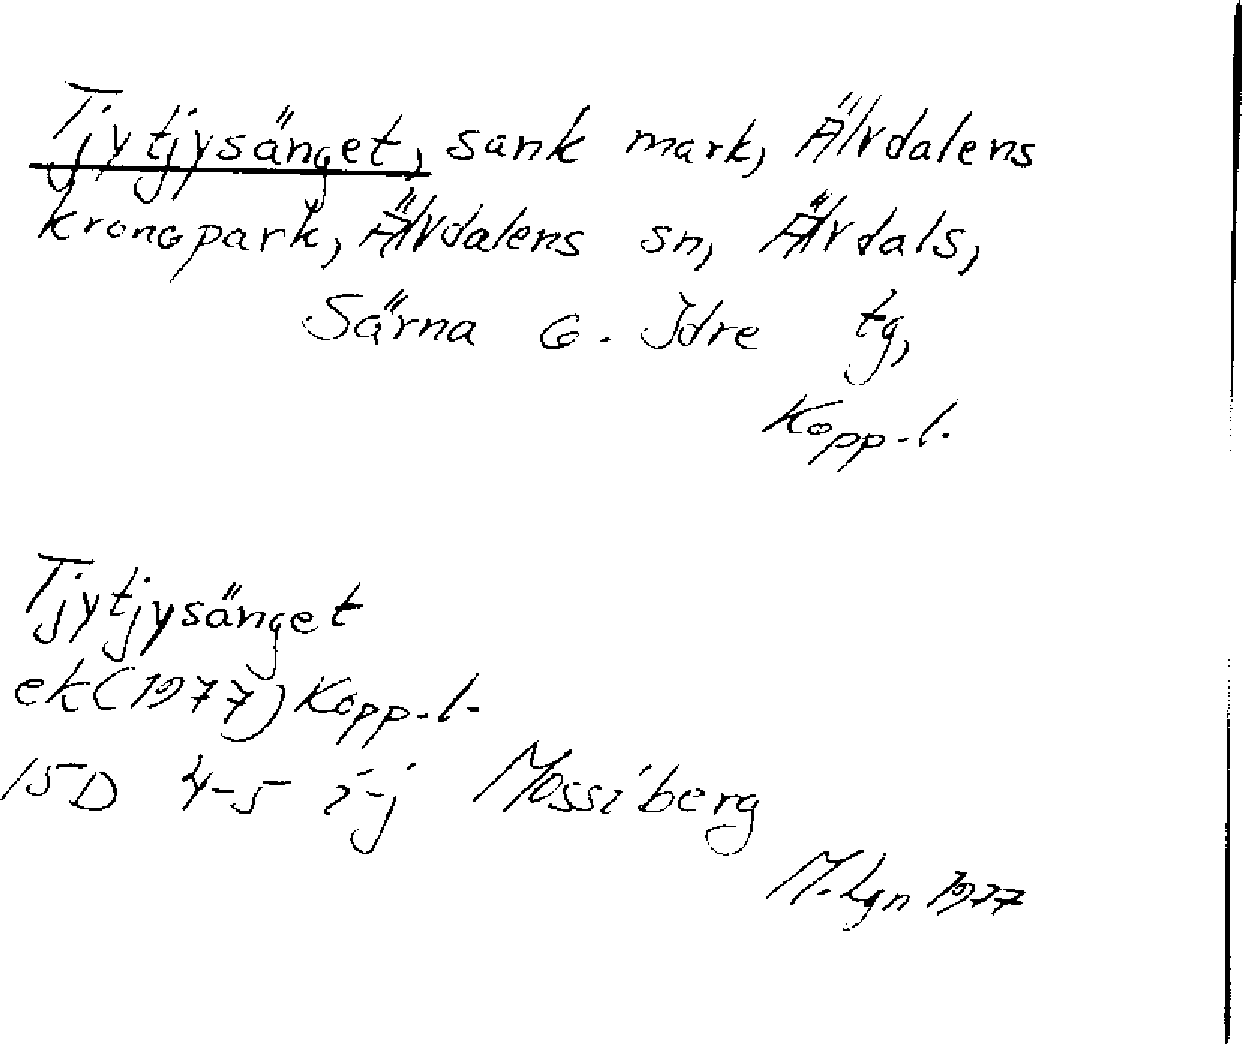 Tjytjysänget, sank mark, Älvdalens
kronopark, Älvdalens sn, Älvdals,
Särna o. Idre tg,
Kopp.l.
Tjytjysänget
ek (1977) Kopp.l.
15D 4-5 i-j Mossiberg
M. Lgn 1977